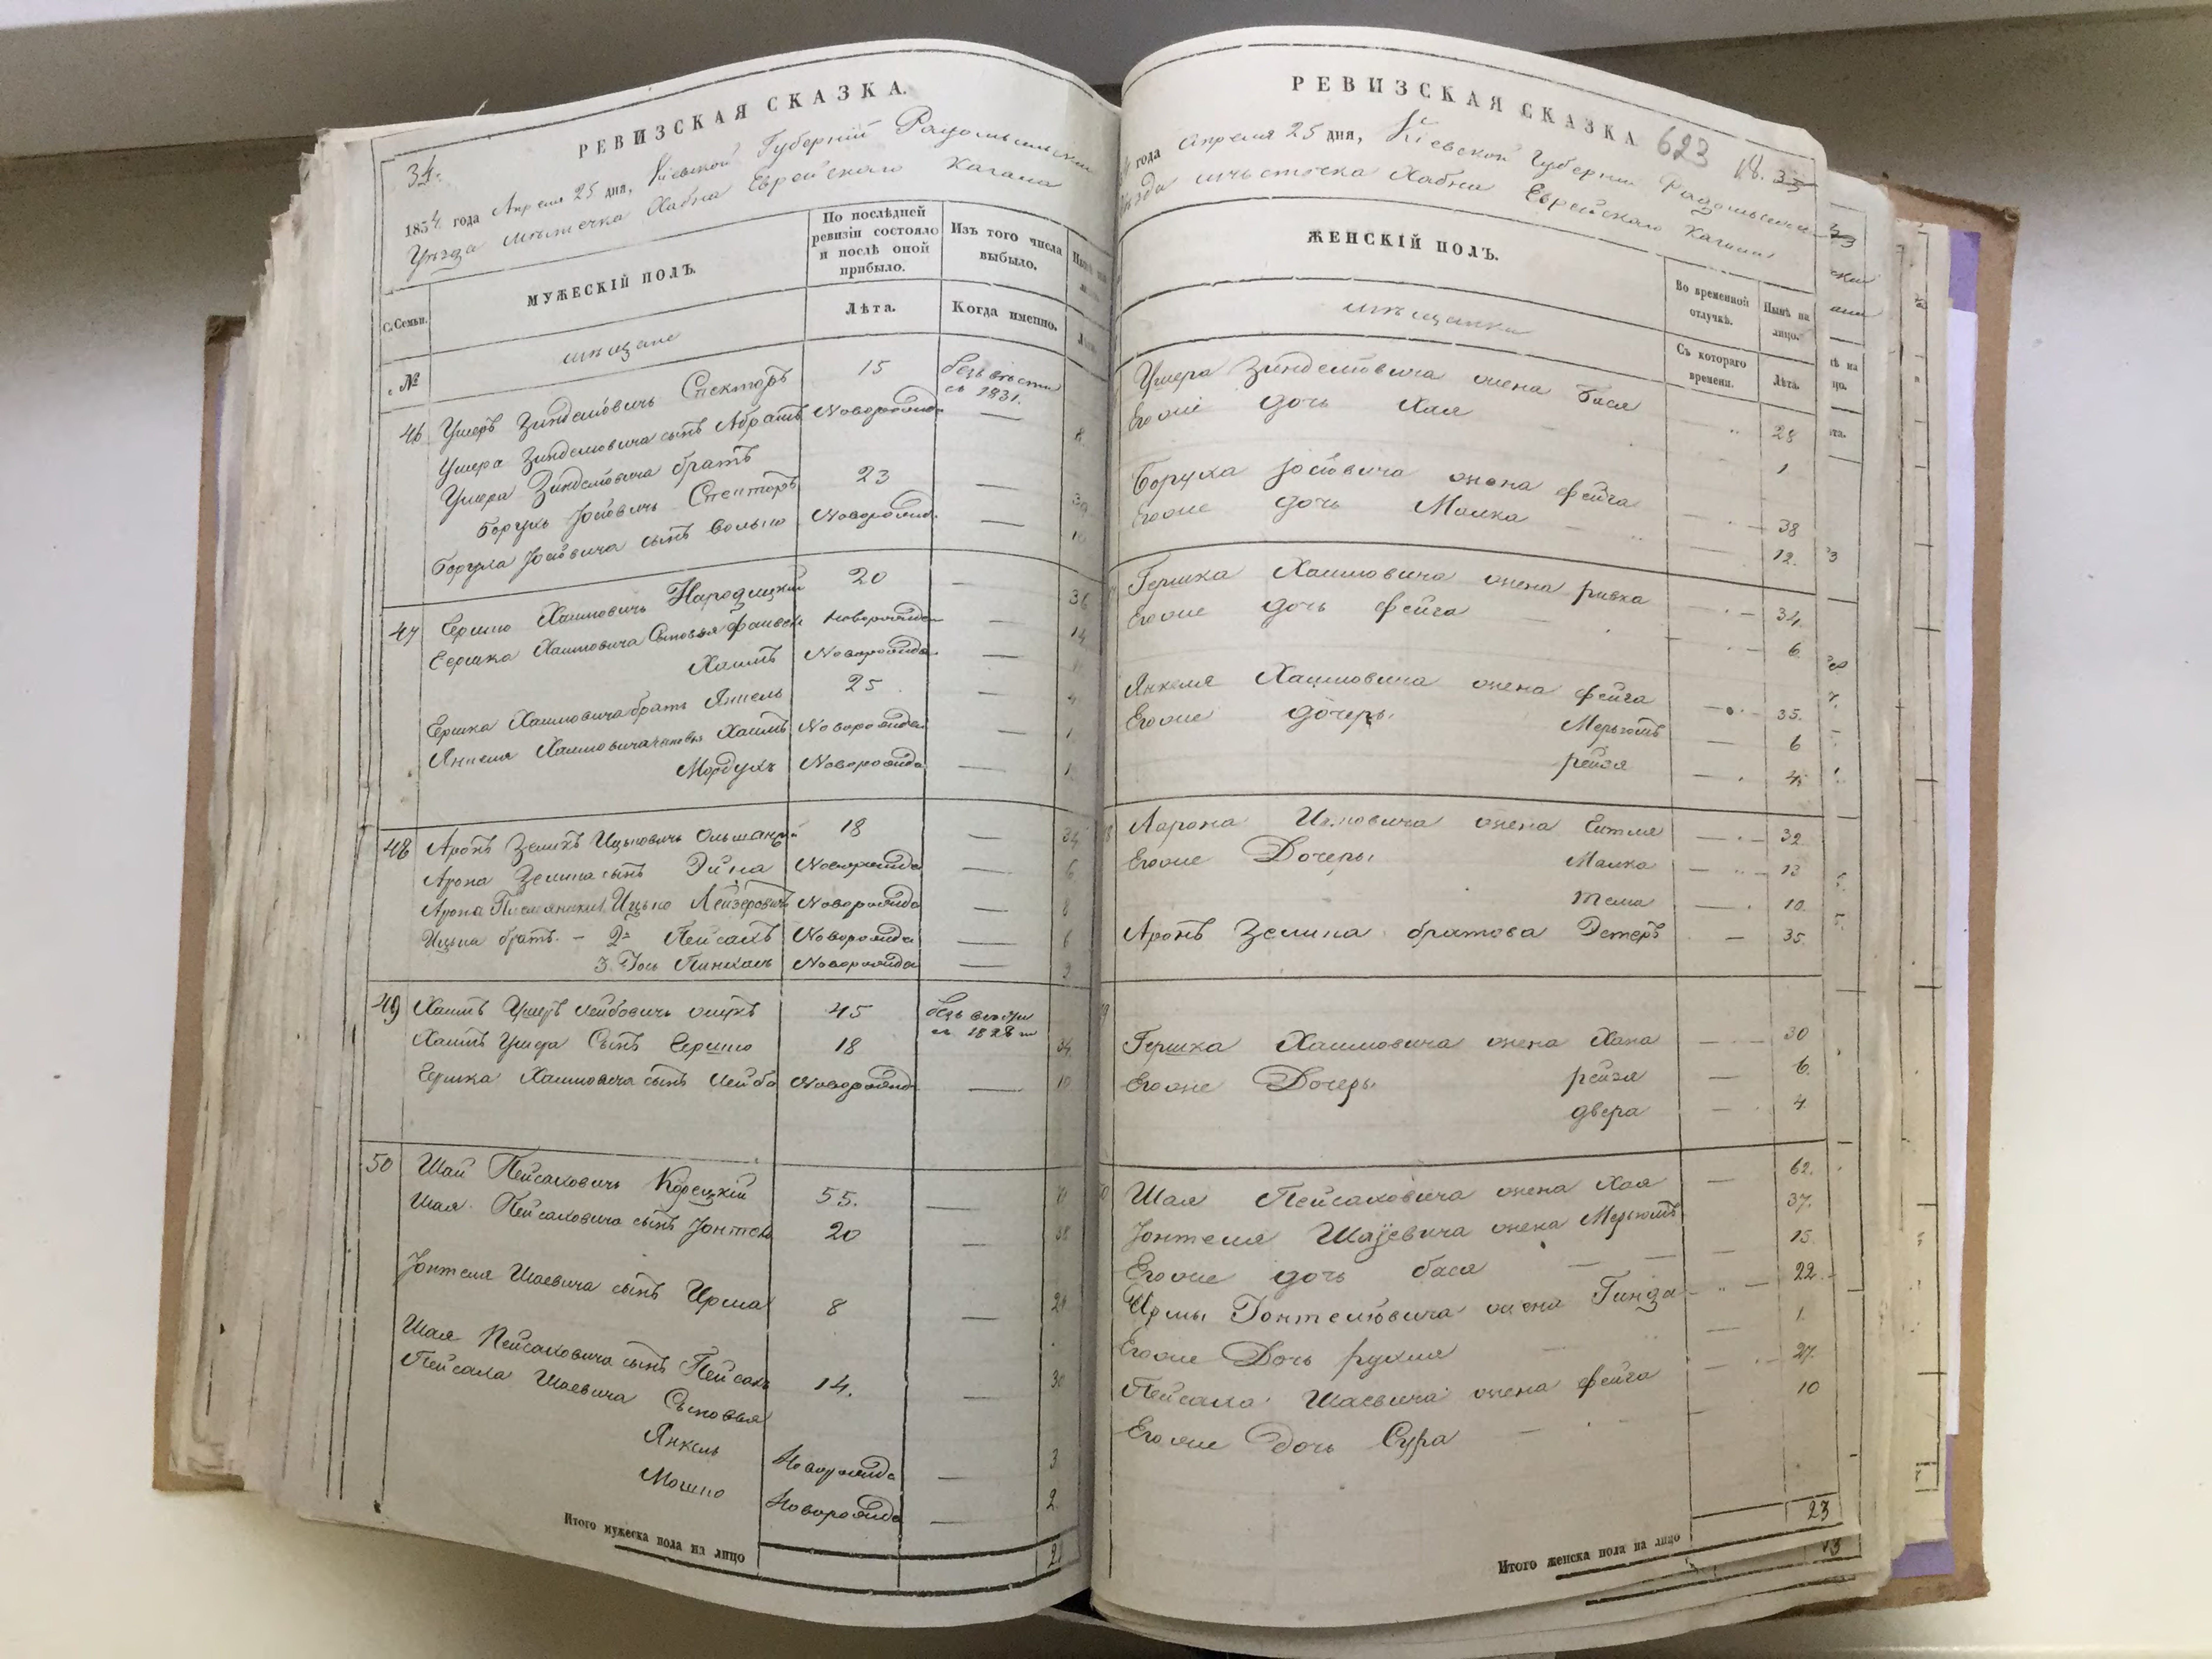 РЕВИЗСКАЯ СКАЗКА.
34.
1834 года Апреля 25 дня, Кіевской Губерніи Радомысльскаго
Уѣзда мѣстечка Хабна Еврейскаго Кагала
С. Семьи.
МУЖЕСКІЙ ПОЛЪ.
По послѣдней ревизіи состояло и послѣ оной прибыло.
Изъ того числа выбыло.
Лѣта.
Когда именно.
№
мѣщане
46 Ушеръ Зинделіовичъ Спекторъ 15 безъ вѣсти съ 1831.
Ушера Зинделіовича сынъ Абрамъ Новорожде — 8
Ушера Зинделіовича братъ
Борухъ Іосіовичъ Спекторъ 23 —
Боруха Іосіовича сынъ Волько Новорожд. —
47 Гершко Хаимовичъ Народицкій 20 — 36
Гершка Хаимовича Сыновья Фаивель Новорожде — 14
Хаимъ Новорожде —
Гершка Хаимовича братъ Янкель 25 —
Янкеля Хаимовича сыновья Хаимъ Новорожде —
Мордухъ Новорожде —
48 Аронъ Зеликъ Ицковичъ Ольшанскій 18 — 34
Арона Зелика сынъ Новорожде — 6
Арона Ицько Лейзеровичъ Новорожде — 8
Ицька братъ. – 2й Пейсахъ Новорожде — 6
3. Іось Пинхасъ Новорожде — 3
49 Хаимъ Ушеръ Лейбовичъ 45 безъ вѣсти съ 1828 го
Хаимъ Ушера Сынъ Гершко 18 — 34
Гершка Хаимовича сынъ Лейба Новорожде — 10
50 Шая Пейсаховичъ Корецкій 55. —
Шая Пейсаховича сынъ Іонтель 20 —
Іонтеля Шаевича сынъ Ирма 8 —
Шая Пейсаховича сынъ Пейсахъ 14. —
Пейсаха Шаевича Сыновья
Янкель Новорожде — 3
Мошко Новорожде — 2.
Итого мужеска пола на лицо
РЕВИЗСКАЯ СКАЗКА
623
года Апреля 25 дня, Кіевской Губерніи Радомысльскаго
Уѣзда мѣстечка Хабна Еврейскаго Кагала
ЖЕНСКІЙ ПОЛЪ.
Во временной отлучкѣ.
Нынѣ на лицо.
Съ котораго времени.
Лѣта.
мѣщанки
Ушера Зинделіовича жена Бася 28
Егоже дочь Хая 1
Боруха Іосіовича жена Фейга 38
Егоже дочь Малка 12.
Гершка Хаимовича жена Ривка 34
Егоже дочь Фейга 6
Янкеля Хаимовича жена Фейга 35.
Егоже дочеры. Мерьямъ — 6
Рейзя — 4
Аарона Ицковича жена Ейтля — 32
Егоже Дочеры Малка — 13
Тема — 10.
Аронъ Зелика братова Эстеръ — 35.
Гершка Хаимовича жена Хана — 30
Егоже Дочеры Рейзя — 6.
Двера — 4
Шая Пейсаховича жена Хая — 62.
Іонтеля Шаіевича жена Мерьямъ 37.
Егоже дочь Бася — 15
Ирмы Іонтеліовича жена Гинда 22.
Егоже Дочь Рухля — 1.
Пейсаха Шаевича жена Фейга — 27.
Егоже Дочь Сура — 10
Итого женска пола на лицо 23